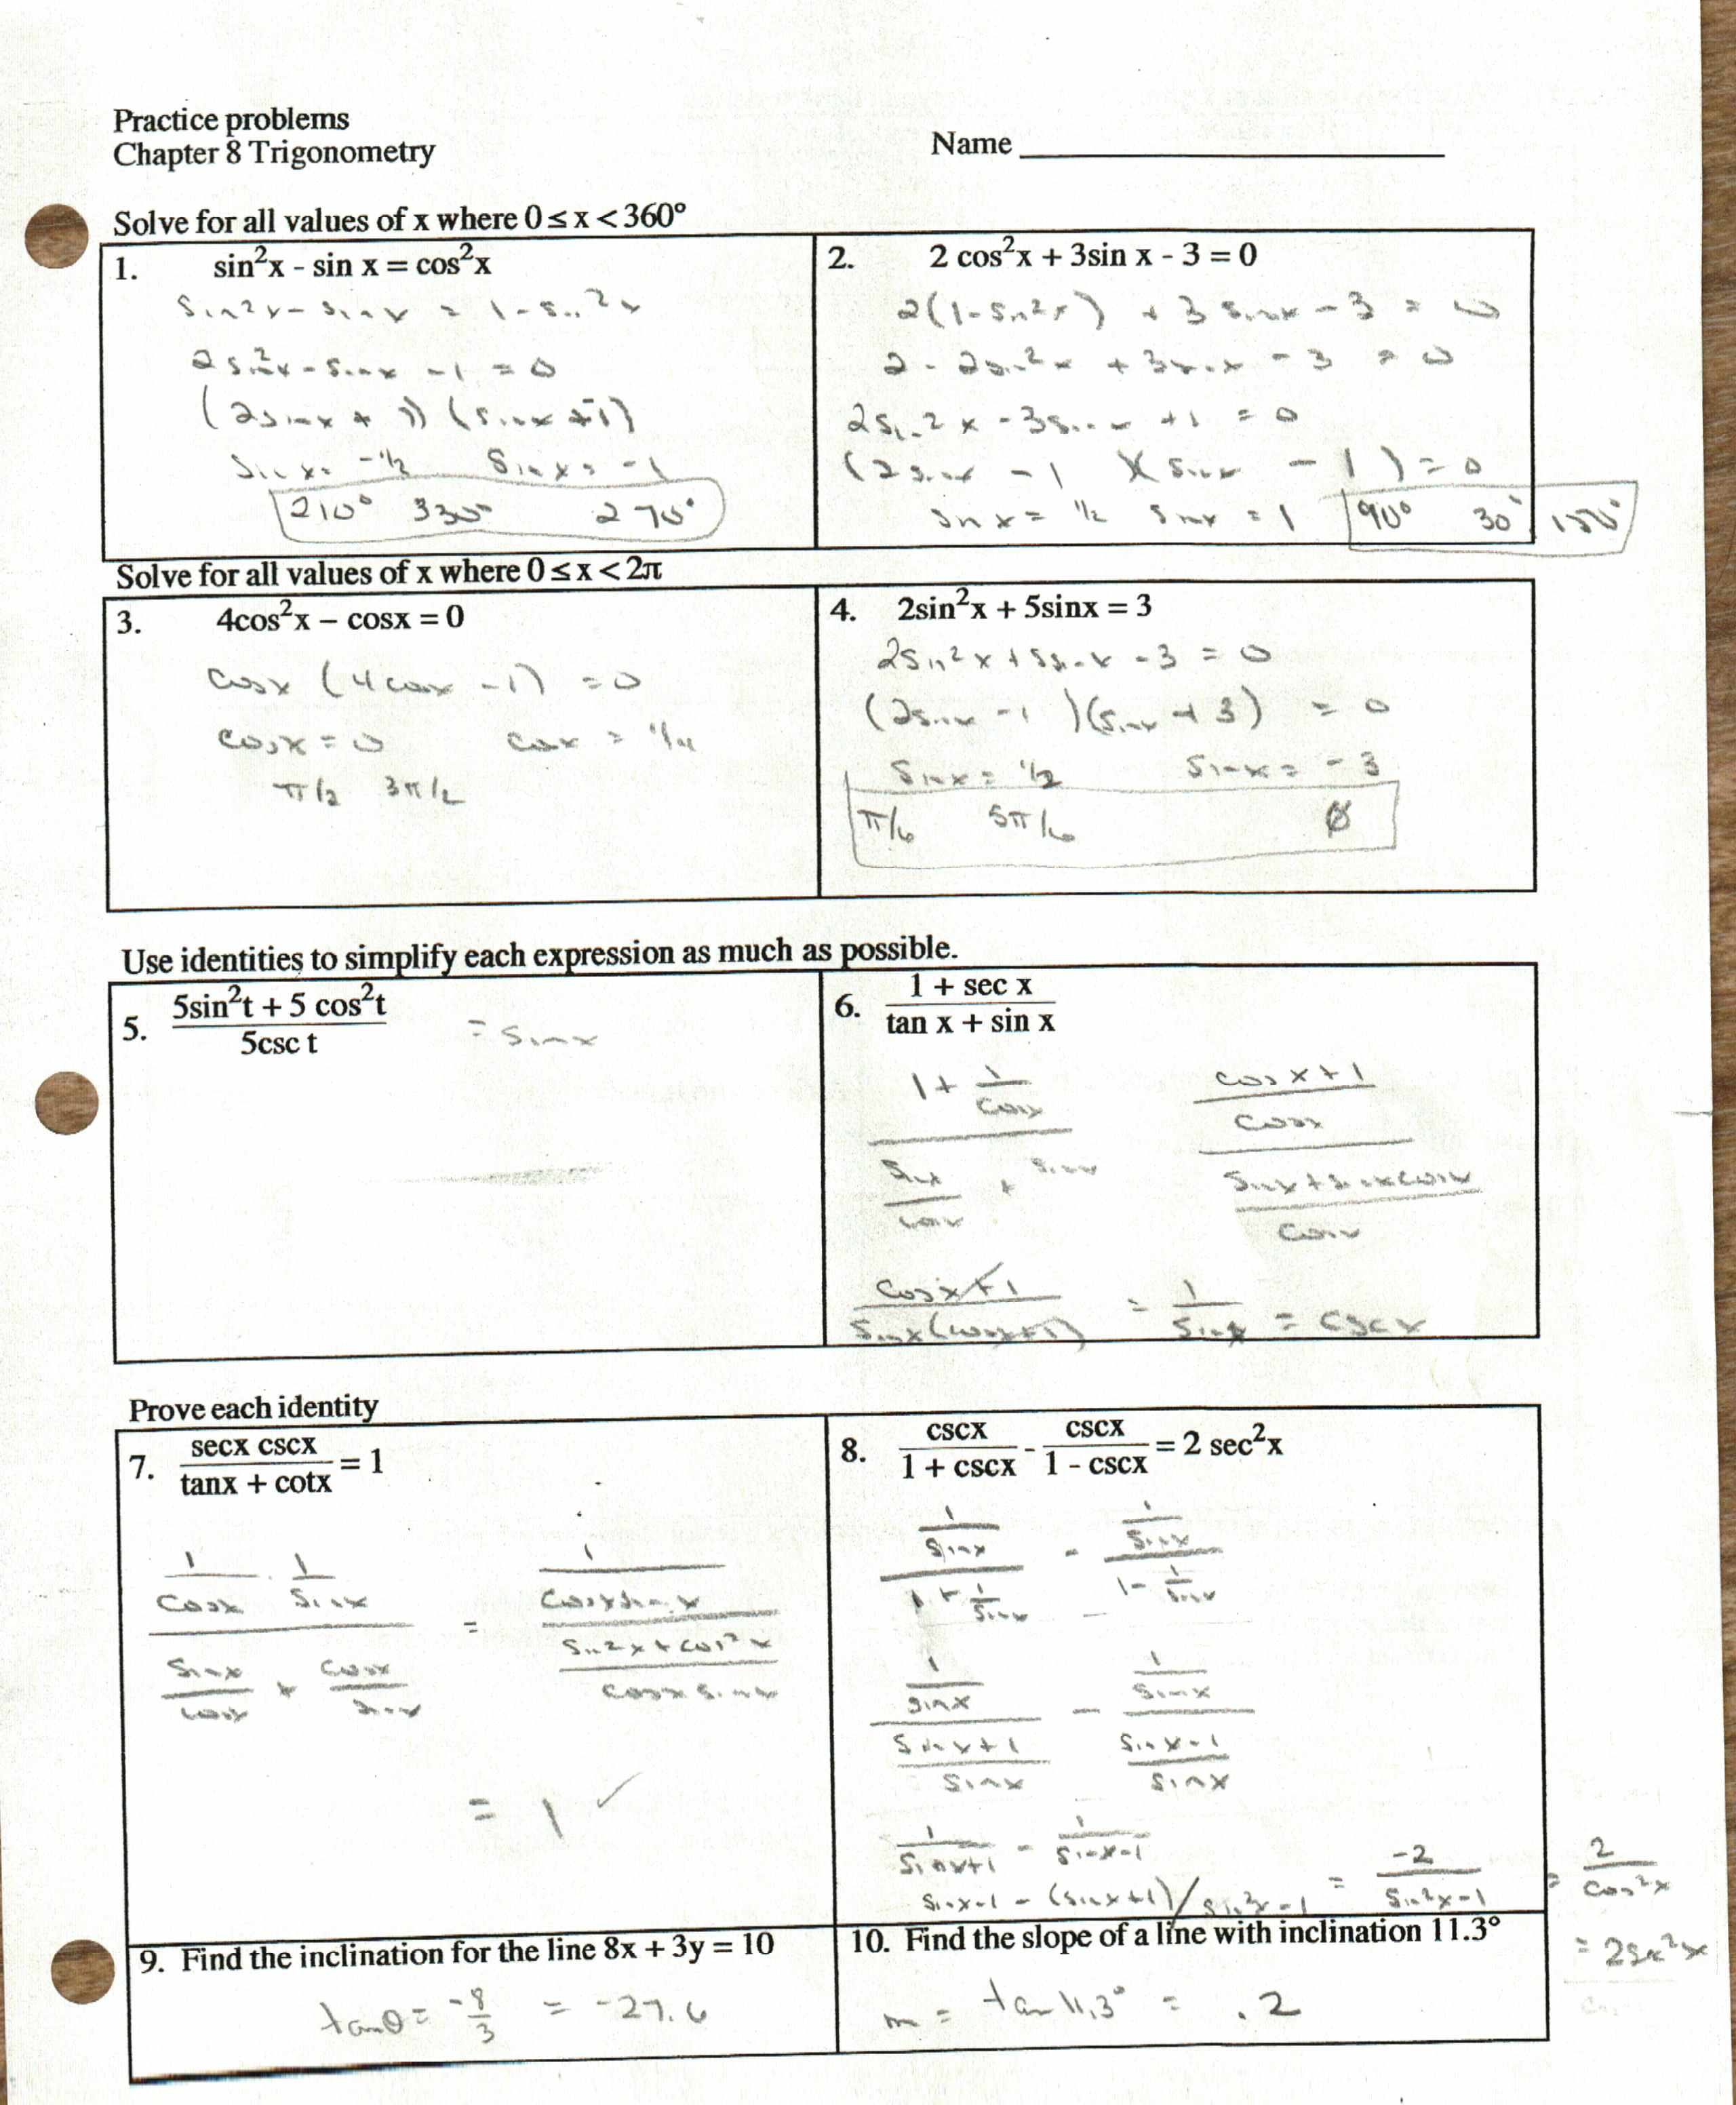 Practice problems
Chapter 8 Trigonometry
Name
Solve for all values of x where 0 ≤ x < 360°
1. sin²x - sin x = cos²x
sin²x - sinx = 1 - sin²x
2sin²x - sinx - 1 = 0
(2sinx + 1) (sinx + -1)
sinx = -1/2 sinx = -1
210° 330° 270°
2. 2 cos²x + 3sin x - 3 = 0
2(1-sin²x) + 3 sinx - 3 = 0
2 - 2sin²x + 3sinx - 3 = 0
2sin²x - 3sinx + 1 = 0
(2sinx - 1 )(sinx - 1) = 0
sinx = 1/2 sinx = 1 90° 30° 150°
Solve for all values of x where 0 ≤ x < 2π
3. 4cos²x – cosx = 0
cosx (4cosx - 1) = 0
cosx = 0 cosx = 1/4
π/2 3π/2
4. 2sin²x + 5sinx = 3
2sin²x + 5sinx - 3 = 0
(2sinx - 1 )(sinx + 3) = 0
sinx = 1/2 sinx = -3
π/6 5π/6 ∅
Use identities to simplify each expression as much as possible.
5. (5sin²t + 5 cos²t) / (5csc t) = sinx
6. (1 + sec x) / (tan x + sin x)
(1 + 1/cosx) / (sinx/cosx + sinx) ((cosx+1)/cosx) / ((sinx+sinxcosx)/cosx)
(cosx+1) / (sinx(cosx+1)) = 1/sinx = cscx
Prove each identity
7. (secx cscx) / (tanx + cotx) = 1
(1/cosx · 1/sinx) / (sinx/cosx + cosx/sinx) = (1/(cosxsinx)) / ((sin²x+cos²x)/(cosxsinx))
= 1 ✓
8. cscx/(1 + cscx) - cscx/(1 - cscx) = 2 sec²x
(1/sinx)/(1 + 1/sinx) - (1/sinx)/(1 - 1/sinx)
(1/sinx)/((sinx+1)/sinx) - (1/sinx)/((sinx-1)/sinx)
1/(sinx+1) - 1/(sinx-1)
sinx-1 - (sinx+1)/sin²x-1 = -2/(sin²x-1) = 2/cos²x
= 2sec²x
9. Find the inclination for the line 8x + 3y = 10
tanθ = -8/3 = -27.6
10. Find the slope of a line with inclination 11.3°
m = tan 11.3° = .2